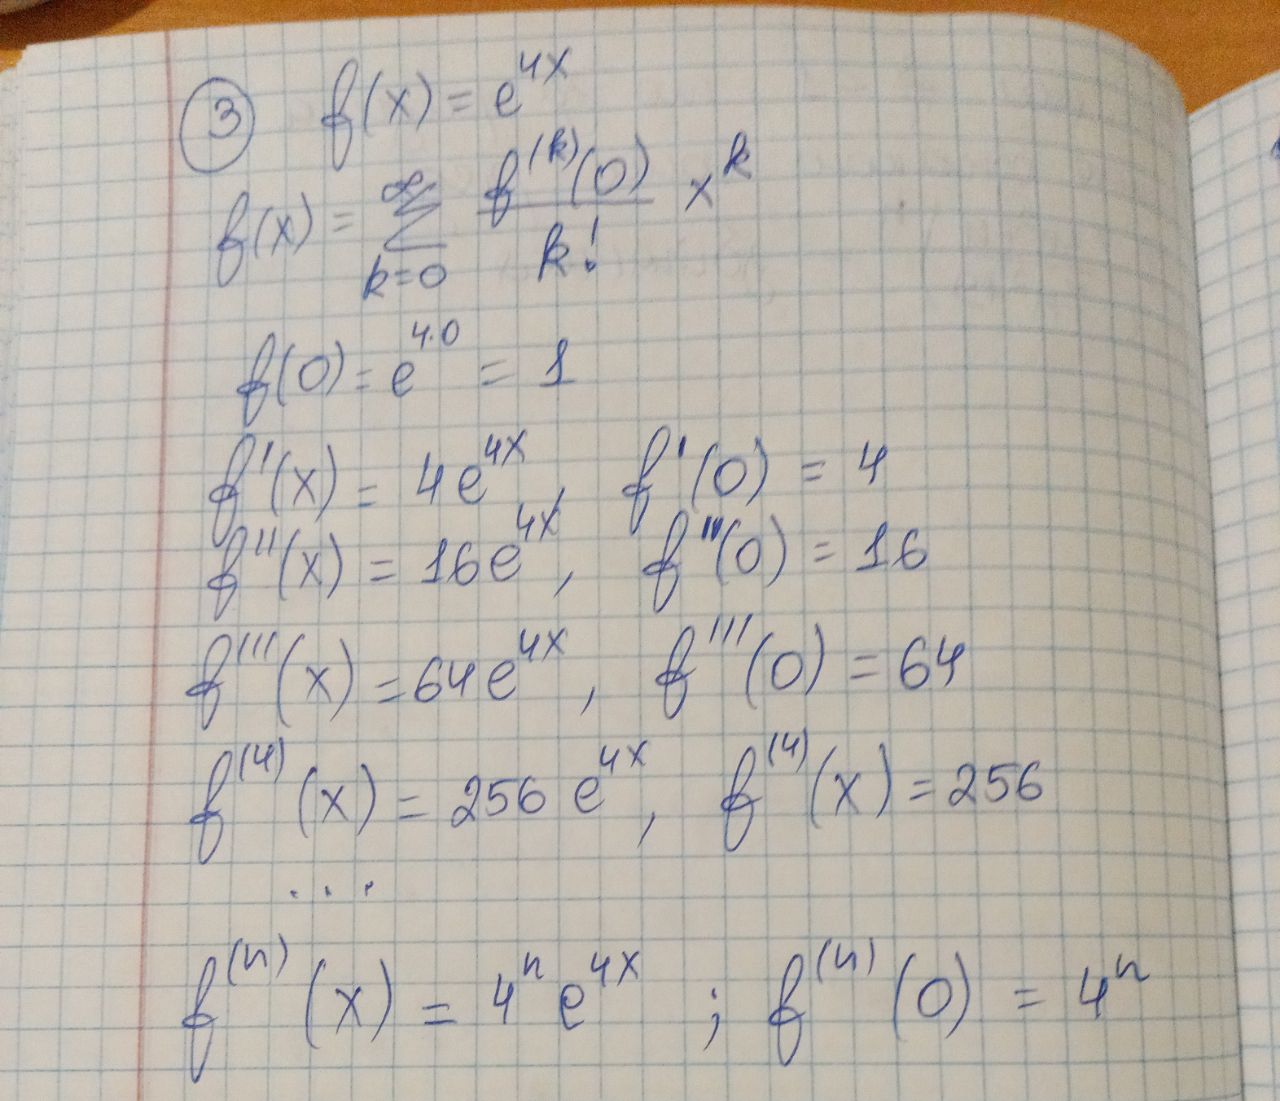 ③ f(x) = e^{4x}
f(x) = \sum_{k=0}^{\infty} \frac{f^{(k)}(0)}{k!} x^k
f(0) = e^{4·0} = 1
f'(x) = 4e^{4x}, f'(0) = 4
f''(x) = 16e^{4x}, f''(0) = 16
f'''(x) = 64e^{4x}, f'''(0) = 64
f^{(4)}(x) = 256 e^{4x}, f^{(4)}(x) = 256
...
f^{(n)}(x) = 4^n e^{4x} ; f^{(n)}(0) = 4^n